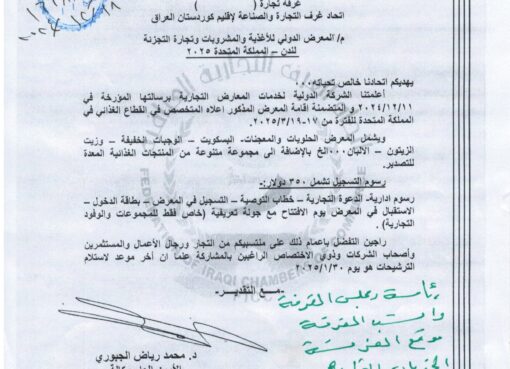 غرفة تجارة (                    )
اتحاد غرف التجارة والصناعة لإقليم كوردستان العراق
م/ المعرض الدولي للأغذية والمشروبات وتجارة التجزئة
لندن – المملكة المتحدة ٢٠٢٥
يهديكم اتحادنا خالص تحياته٠٠٠
أعلمتنا الشركة الدولية لخدمات المعارض التجارية برسالتها المؤرخة في
٢٠٢٤/١٢/١١ و المتضمنة اقامة المعرض المذكور اعلاه المتخصص في القطاع الغذائي في
المملكة المتحدة للفترة من ١٧-٢٠٢٥/٣/١٩.
ويشمل المعرض الحلويات والمعجنات- البسكويت – الوجبات الخفيفة – وزيت
الزيتون – الالبان٠٠٠الخ بالإضافة الى مجموعة متنوعة من المنتجات الغذائية المعدة
للتصدير.
رسوم التسجيل تشمل ٣٥٠ دولار:-
رسوم ادارية- الدعوة التجارية – خطاب التوصية – التسجيل في المعرض – بطاقة الدخول –
الاستقبال في المعرض يوم الافتتاح مع جولة تعريفية (خاص فقط للمجموعات والوفود
التجارية) .
راجين التفضل باعمام ذلك على منتسبيكم من التجار ورجال الأعمال والمستثمرين
وأصحاب الشركات وذوي الاختصاص الراغبين بالمشاركة علما ان آخر موعد لاستلام
الترشيحات هو يوم ٢٠٢٥/١/٣٠.
-مـــع التقديـــر-
موقع الغرفة
د. محمد رياض الجبوري